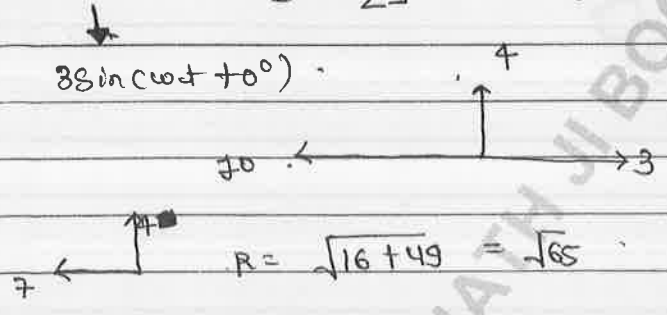 3sin(ωt +0°)
4
10
3
4
7
R = √16+49 = √65